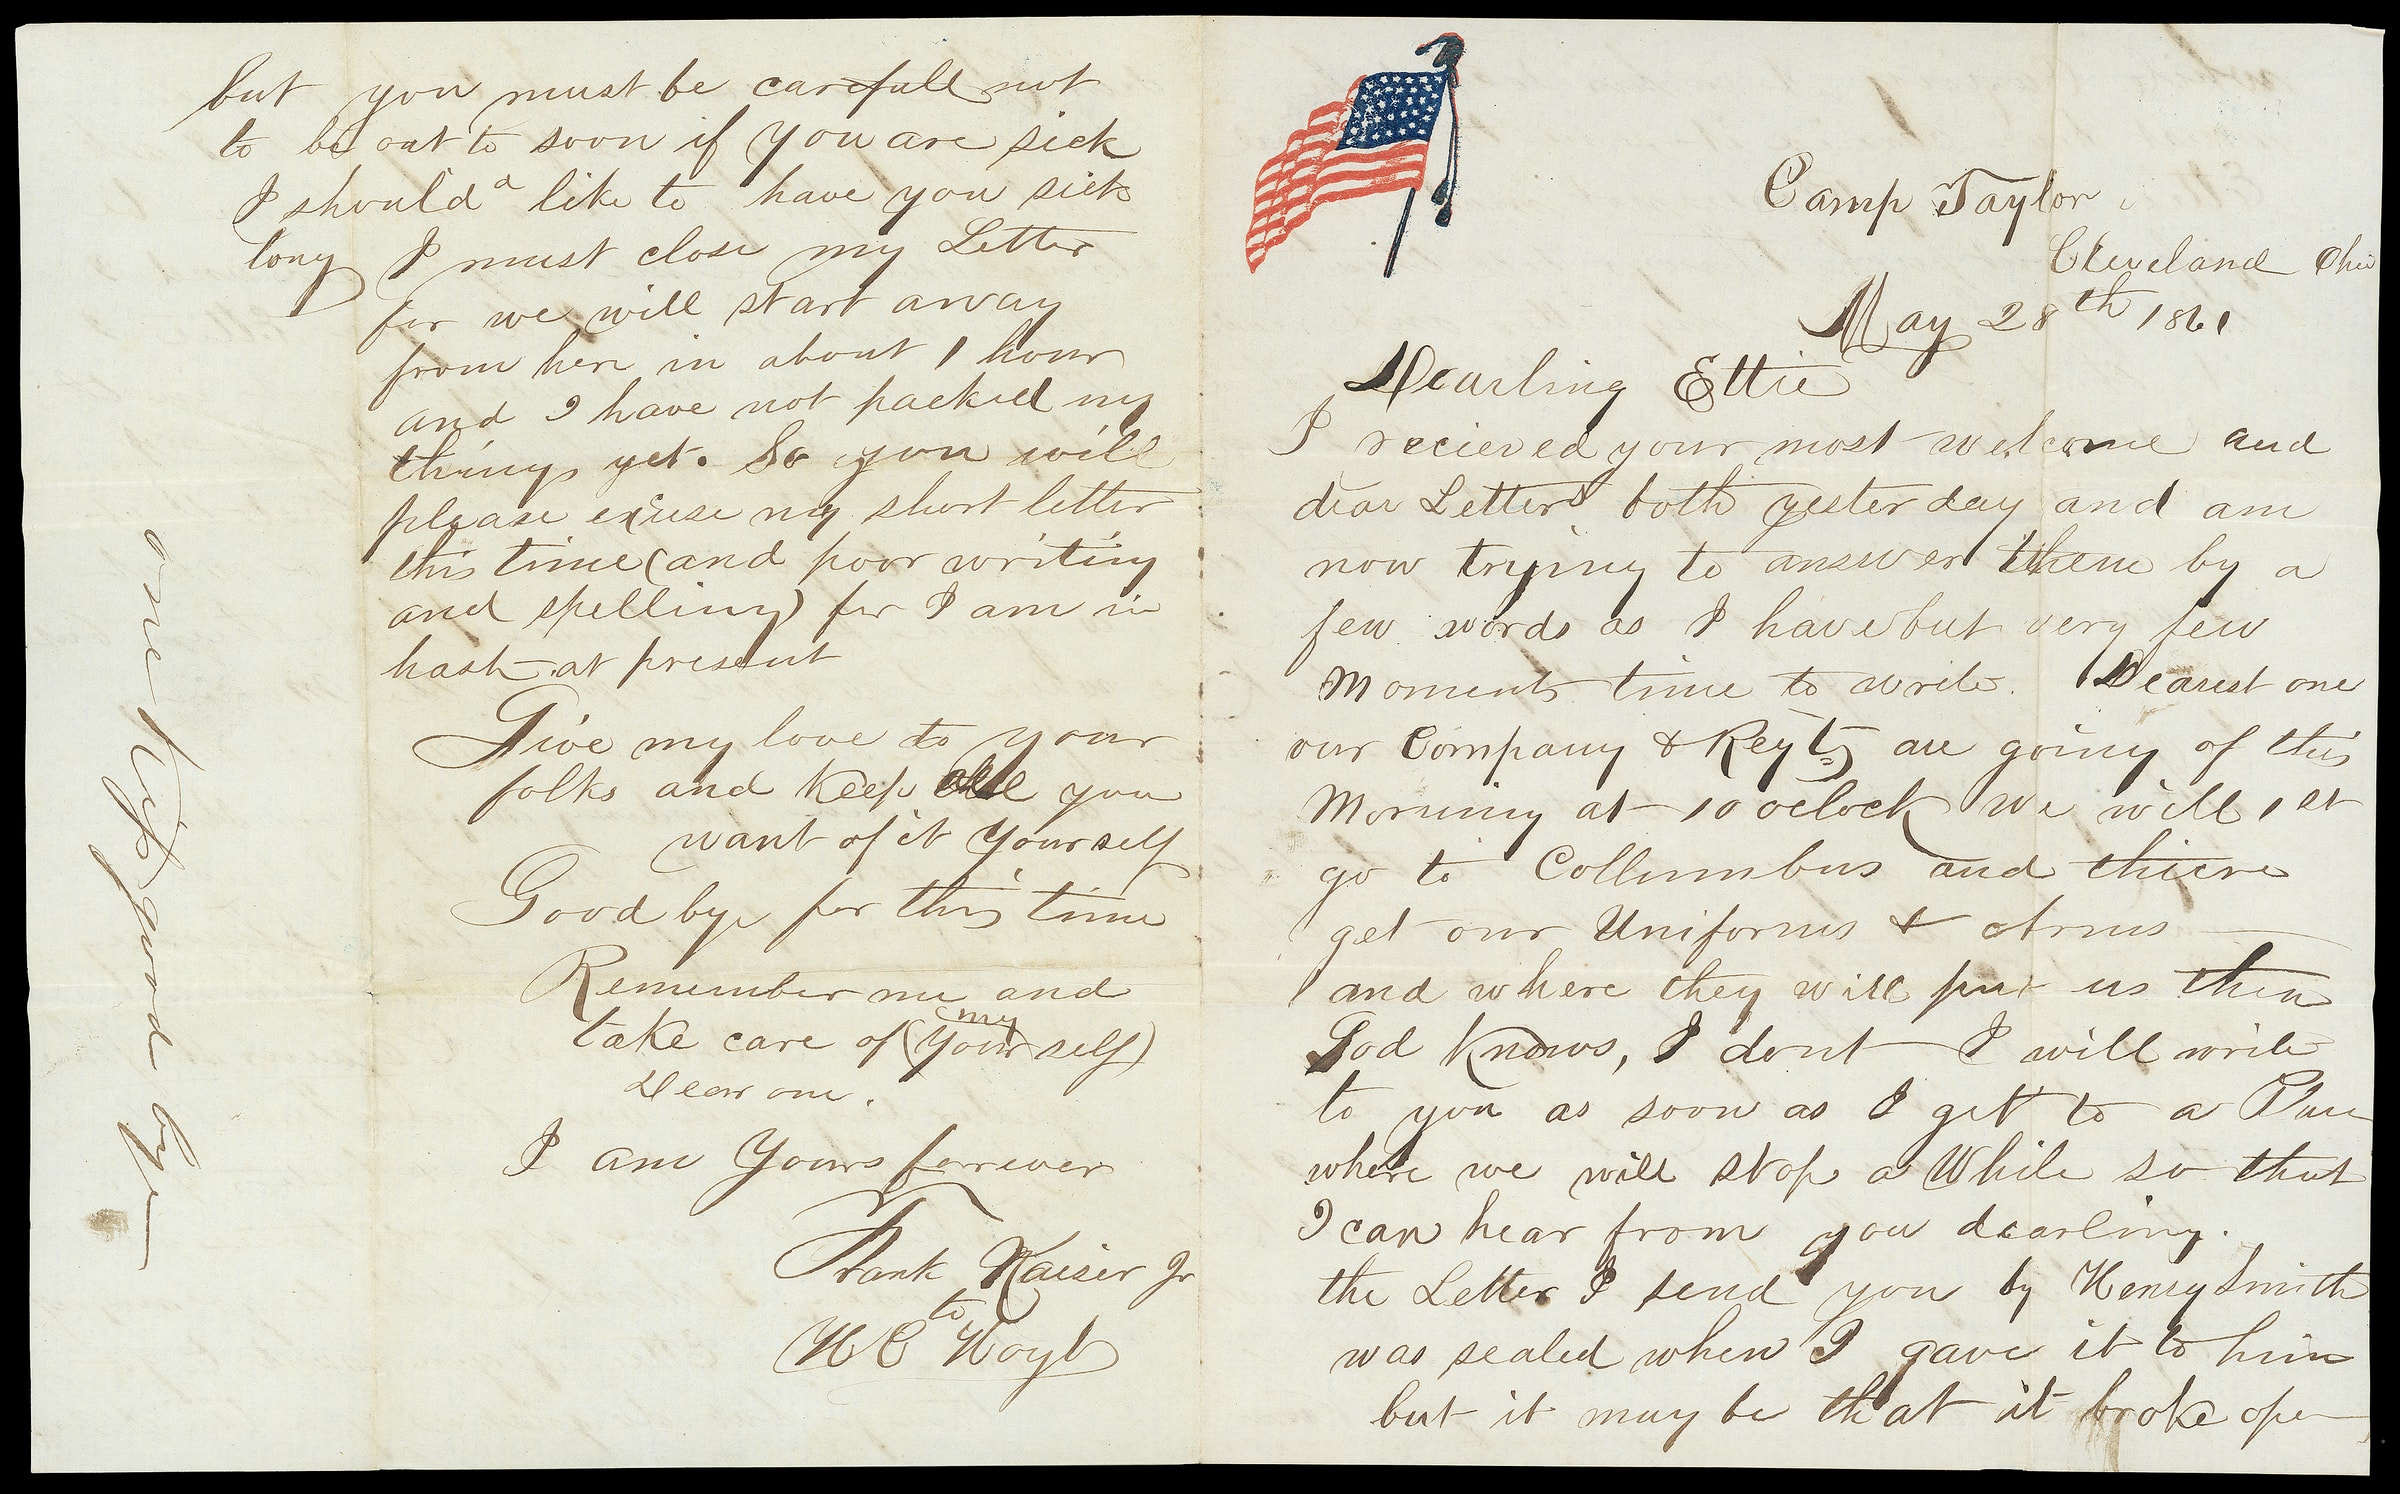 Camp Taylor
Cleveland Ohio
May 28th 1861
Dearling Ettie
I recieved your most welcome and
dear Letters both yesterday and am
now trying to answer them by a
few words as I have but very few
Moments time to write. Dearest one
our Company & Regt are going of this
Morning at 10 oclock we will 1st
go to Collumbus and thiere
get our Uniforms & Arms
and where they will put us then
God knows, I dont I will write
to you as soon as I get to a Place
where we will stop a While so that
I can hear from you dearling.
the Letter I send you by Henry Smith
was sealed when I gave it to him
but it may be that it broke open
but you must be carefull not
to be out to soon if you are sick
I should a like to have you sick
long I must close my Letter
for we will start away
from here in about 1 hour
and I have not packed my
things yet. So you will
please excuse my short letter
this time (and poor writing
and spelling) for I am in
hast at present
Give my love to your
folks and keep all you
want of it Yourself
Good bye for this time
Remember me and
take care of (your self)
my
Dear one.
I am Yours forrever
Frank Kaiser Jr
to
H C Hoyt
one kiss good bye